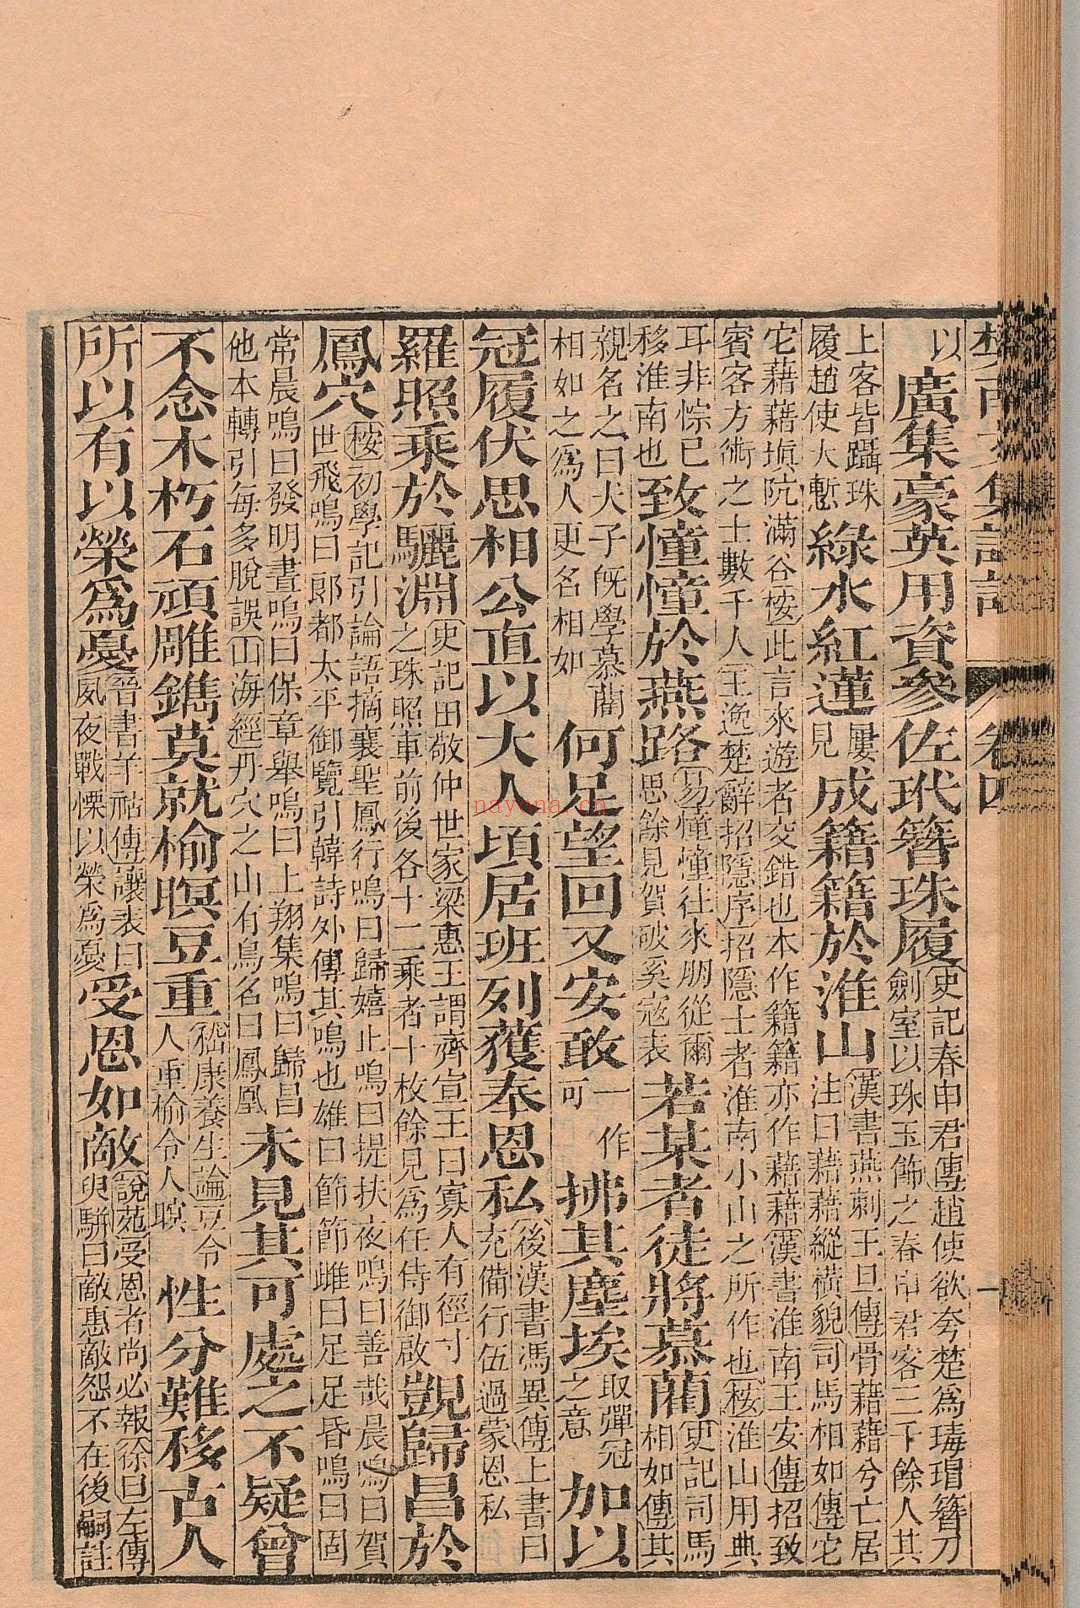 卷四
以廣集豪英用資參佐玳簪珠履史記春申君傳趙使欲夸楚爲瑇瑁簪刀劍室以珠玉飾之春申君客三千餘人其
上客皆躡珠履趙使大慙綠水紅蓮屢見成籍籍於淮山漢書燕剌王旦傳骨藉藉兮亡居注曰藉藉縱橫貌司馬相如傳它
它藉藉塡阬滿谷桉此言來遊者交錯也本作籍籍亦作藉藉漢書淮南王安傳招致賓客方術之士數千人王逸楚辭招隱序招隱士者淮南小山之所作也桉淮山用典
耳非悰已移淮南也致憧憧於燕路易憧憧往來朋從爾思餘見賀破奚寇表若某者徒將慕藺史記司馬相如傳其
親名之曰犬子旣學慕藺相如之爲人更名相如何足望回又安敢一作可拂其塵埃取彈冠之意加以
冠履伏思相公直以大人頃居班列獲奉恩私後漢書馮異傳上書曰充備行伍過蒙恩私
羅照乘於驪淵史記田敬仲世家梁惠王謂齊宣王曰寡人有徑寸之珠照車前後各十二乘者十枚餘見爲任侍御啟覬歸昌於
鳳穴桉初學記引論語摘襄聖鳳行鳴曰歸嬉止鳴曰提扶夜鳴曰善哉晨鳴曰賀世飛鳴曰郞都太平御覽引韓詩外傳其鳴也雄曰節節雌曰足足昏鳴曰固
常晨鳴曰發明晝鳴曰保章舉鳴曰上翔集鳴曰歸昌他本轉引每多脫誤山海經丹穴之山有鳥名曰鳳凰未見其可處之不疑曾
不念木朽石頑雕鐫莫就榆暝豆重嵇康養生論豆令人重榆令人暝性分難移古人
所以有以榮爲憂晉書羊祜傳讓表曰夙夜戰慄以榮爲憂受恩如敵說苑受恩者尚必報徐曰左傳臾騈曰敵惠敵怨不在後嗣註